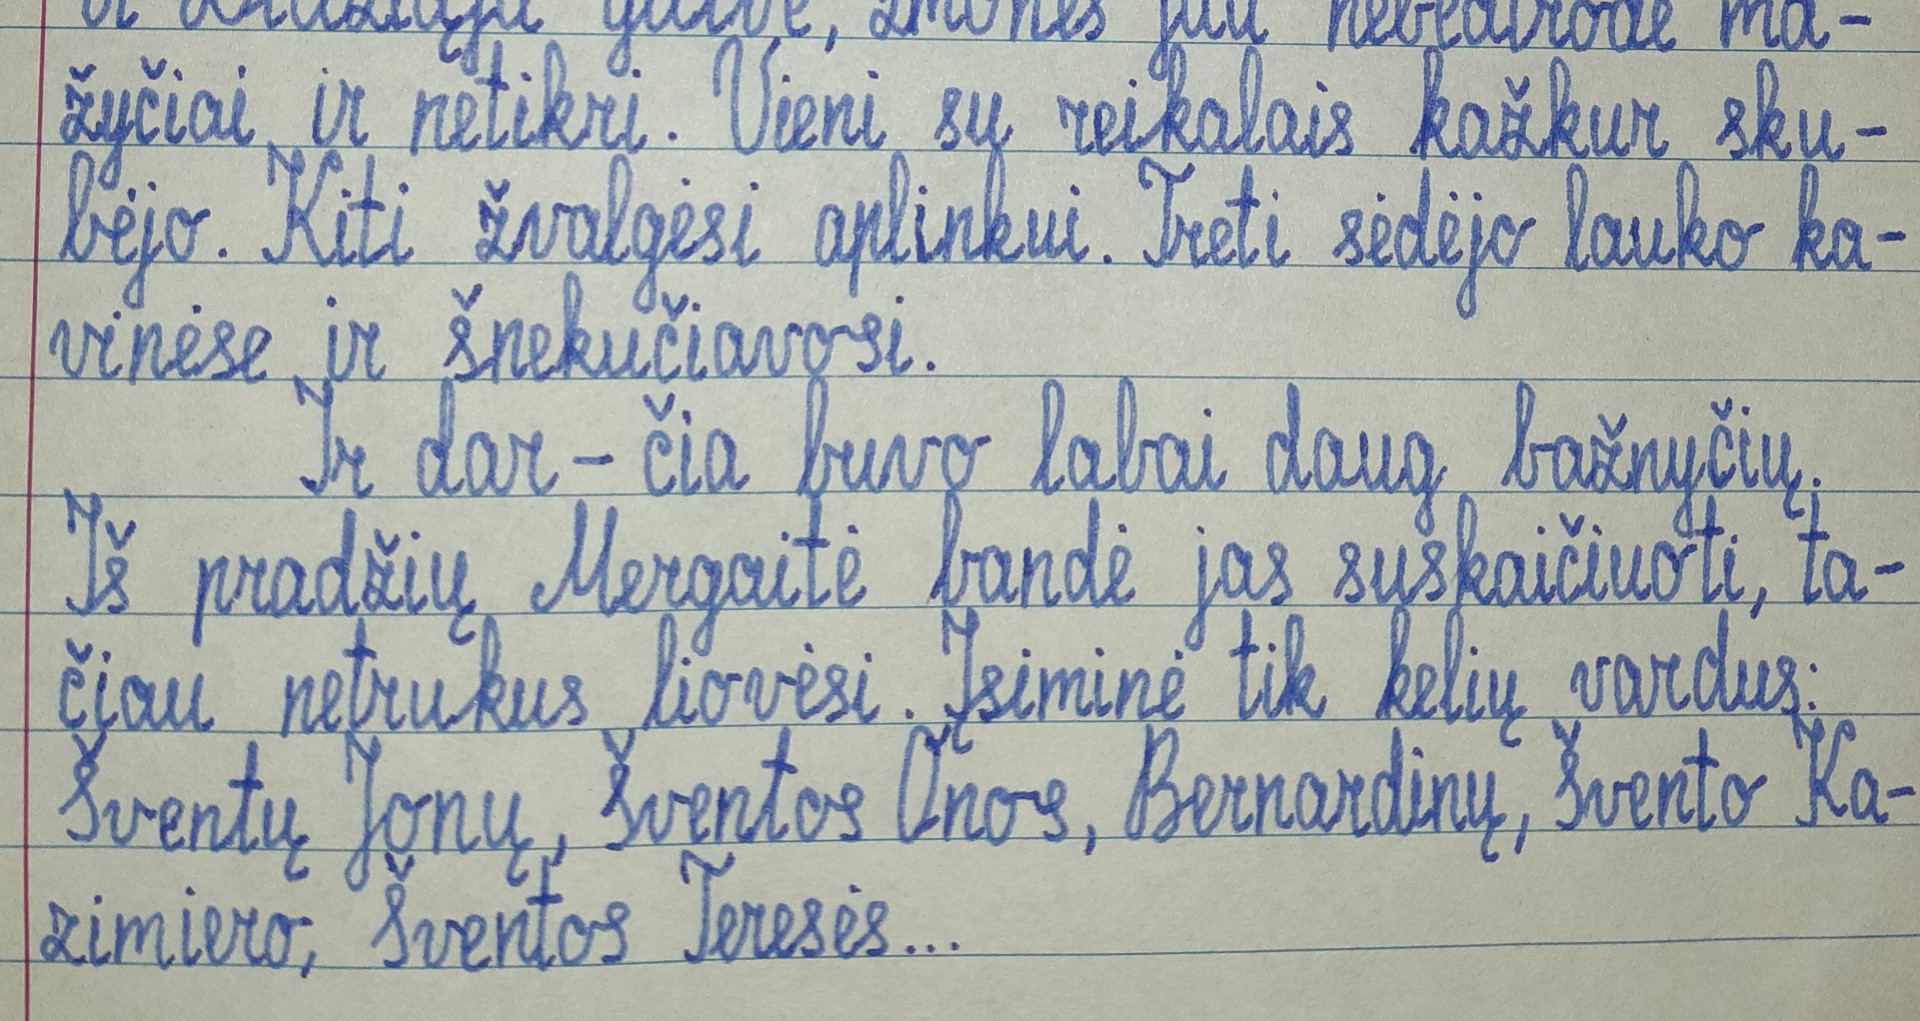 gatvę, žmonės jau nebeatrodė ma-
žyčiai ir netikri. Vieni su reikalais kažkur sku-
bėjo. Kiti žvalgėsi aplinkui. Treti sėdėjo lauko ka-
vinėse ir šnekučiavosi.
Ir dar – čia buvo labai daug bažnyčių.
Iš pradžių Mergaitė bandė jas suskaičiuoti, ta-
čiau netrukus liovėsi. Įsiminė tik kelių vardus:
Šventų Jonų, Šventos Onos, Bernardinų, Švento Ka-
zimiero, Šventos Teresės...